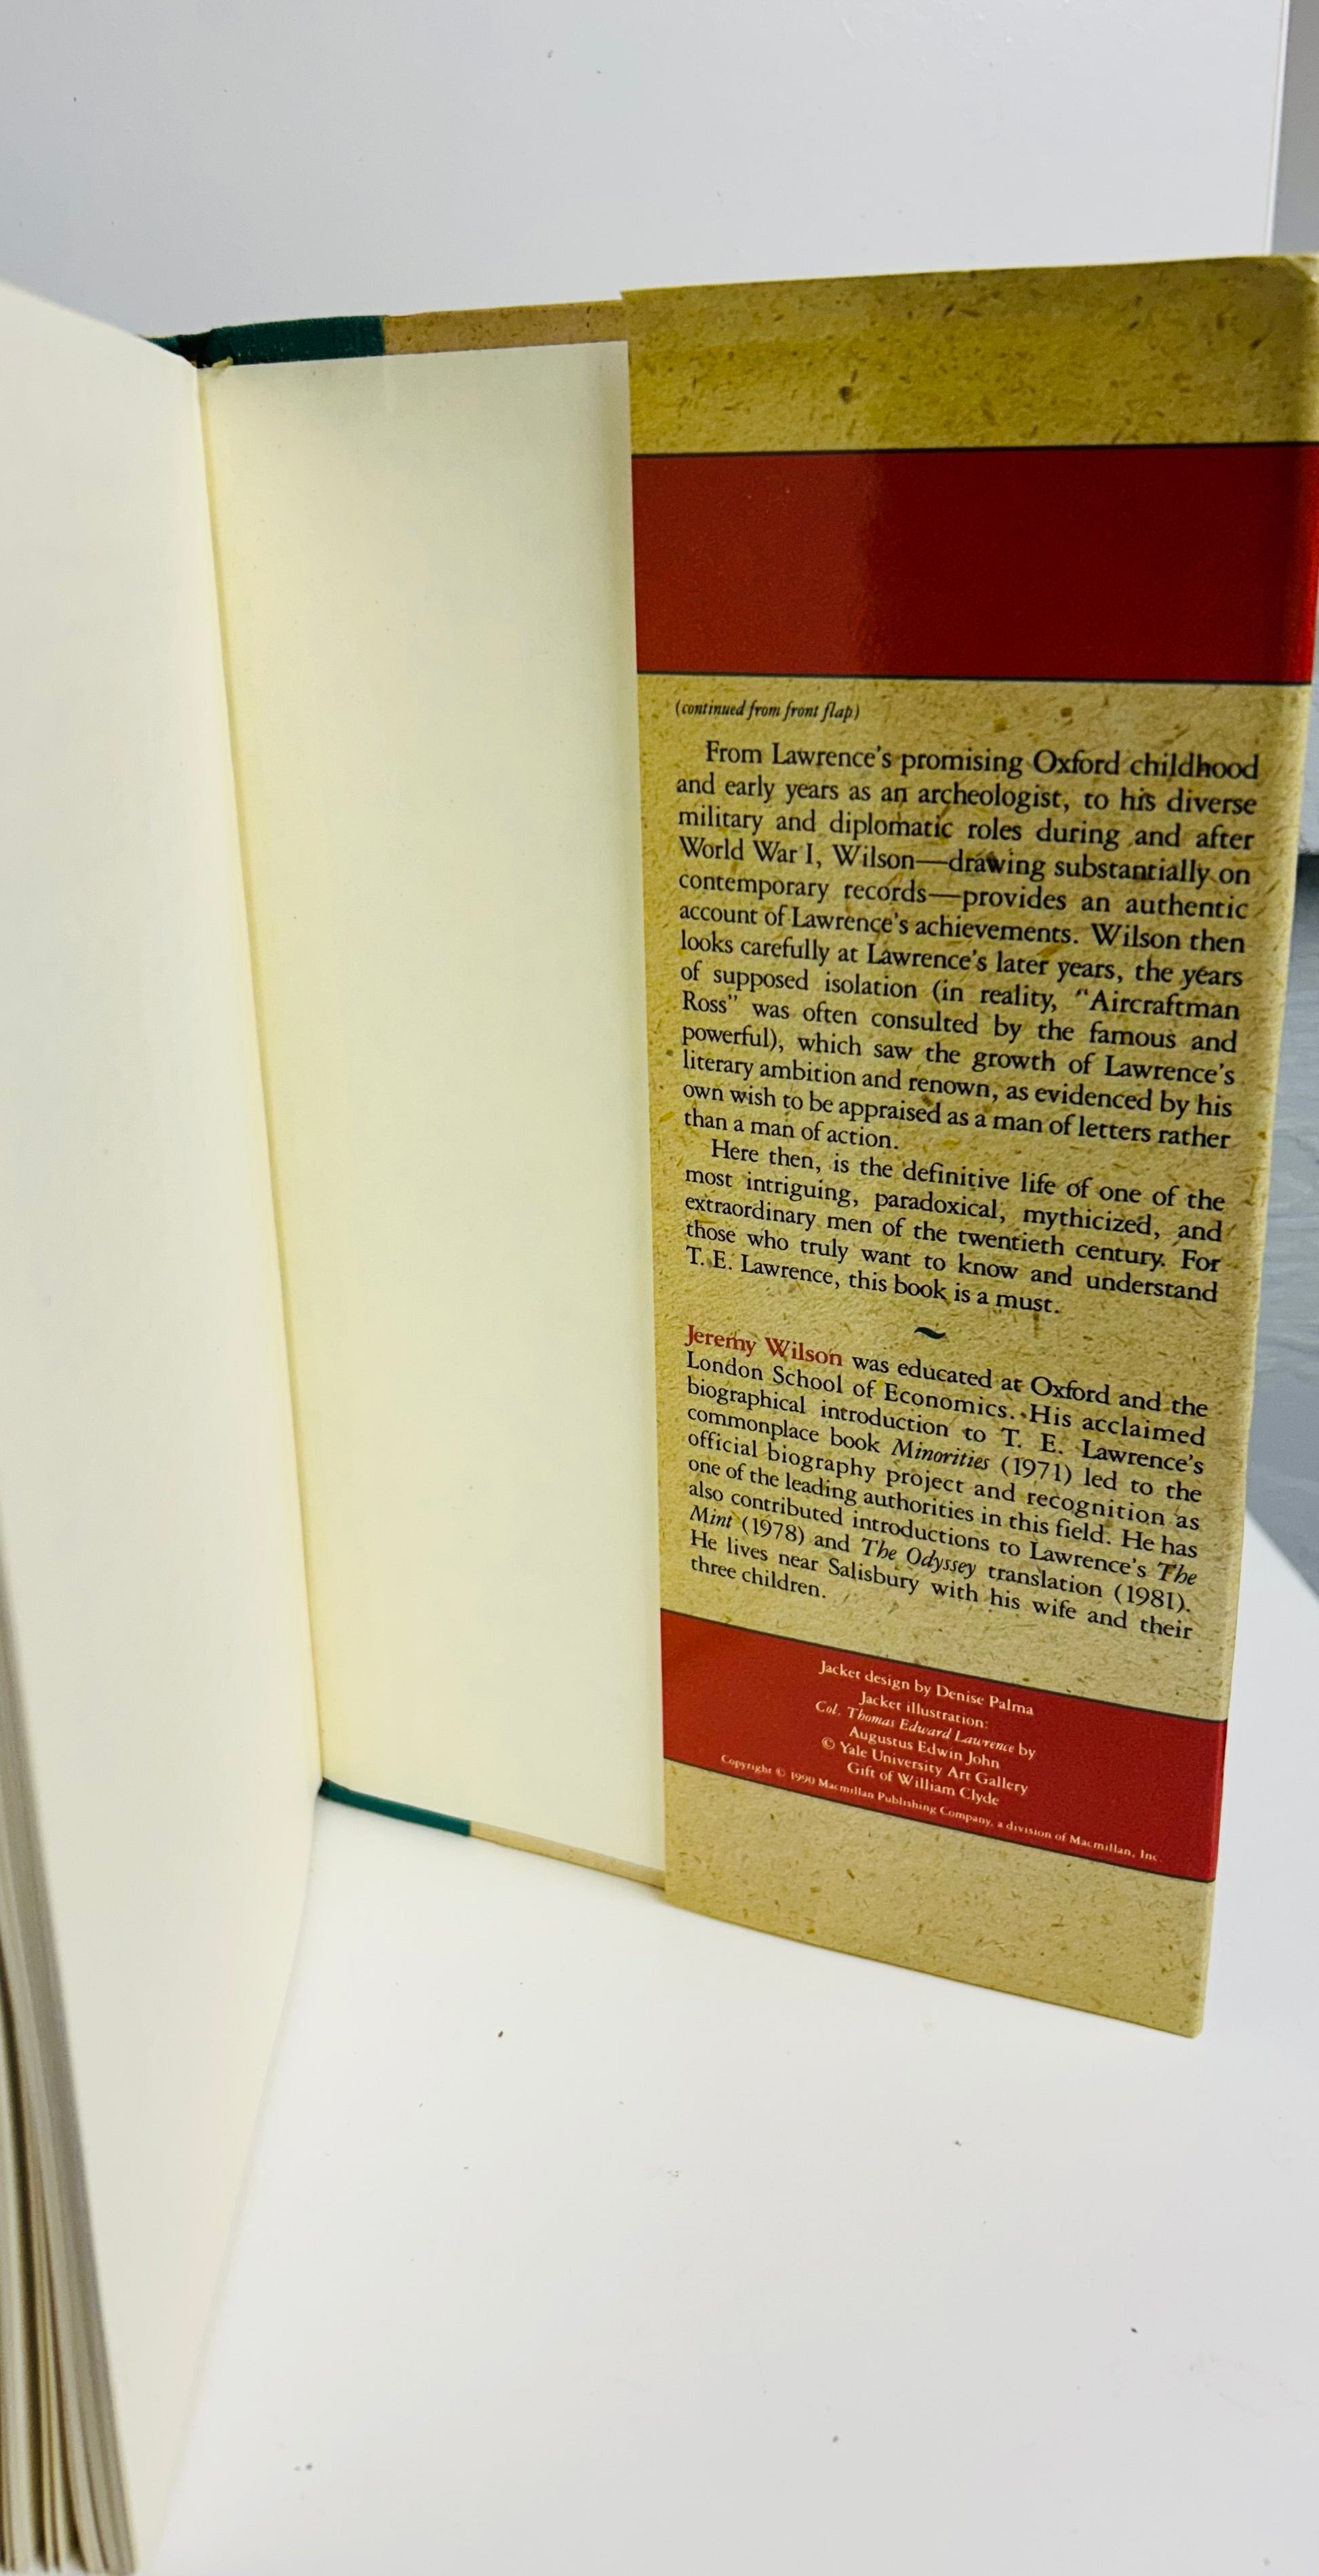 (continued from front flap)
From Lawrence's promising Oxford childhood
and early years as an archeologist, to his diverse
military and diplomatic roles during and after
World War I, Wilson—drawing substantially on
contemporary records—provides an authentic
account of Lawrence's achievements. Wilson then
looks carefully at Lawrence's later years, the years
of supposed isolation (in reality, "Aircraftman
Ross" was often consulted by the famous and
powerful), which saw the growth of Lawrence's
literary ambition and renown, as evidenced by his
own wish to be appraised as a man of letters rather
than a man of action.
Here then, is the definitive life of one of the
most intriguing, paradoxical, mythicized, and
extraordinary men of the twentieth century. For
those who truly want to know and understand
T. E. Lawrence, this book is a must.
~
Jeremy Wilson was educated at Oxford and the
London School of Economics. His acclaimed
biographical introduction to T. E. Lawrence's
commonplace book Minorities (1971) led to the
official biography project and recognition as
one of the leading authorities in this field. He has
also contributed introductions to Lawrence's The
Mint (1978) and The Odyssey translation (1981).
He lives near Salisbury with his wife and their
three children.
Jacket design by Denise Palma
Jacket illustration:
Col. Thomas Edward Lawrence by
Augustus Edwin John
© Yale University Art Gallery
Gift of William Clyde
Copyright © 1990 Macmillan Publishing Company, a division of Macmillan, Inc.